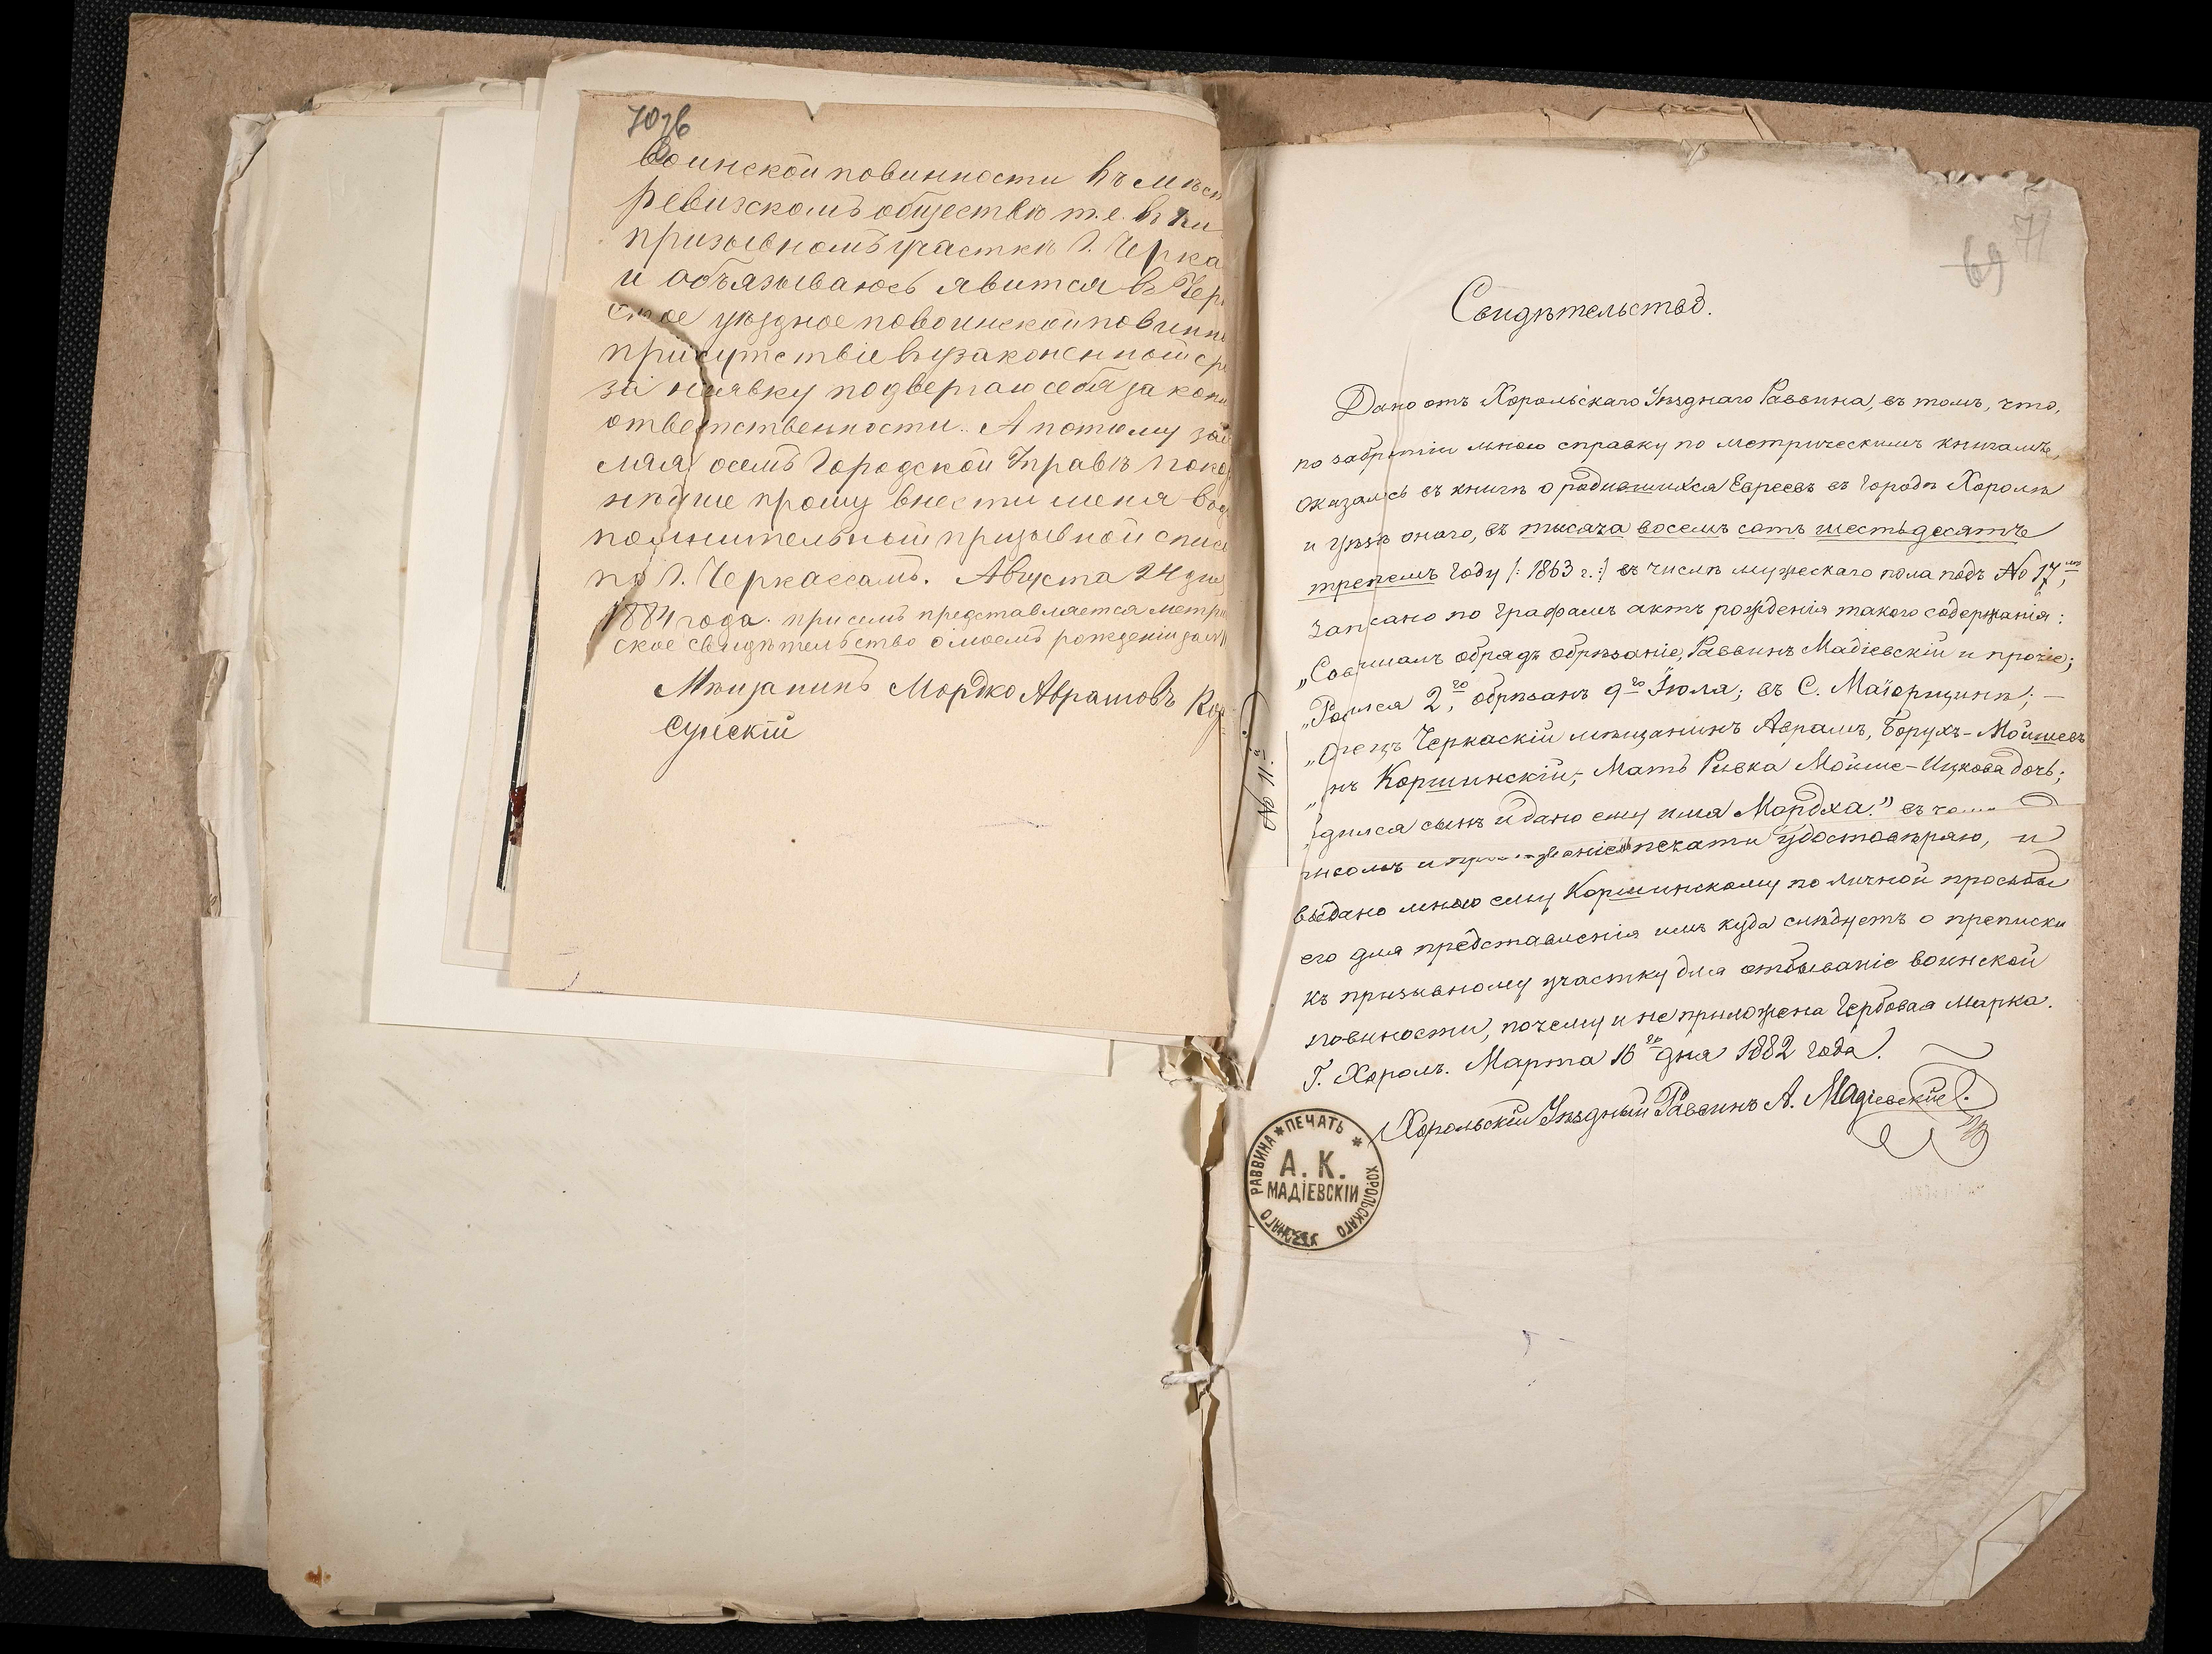 70зв
воинской повинности въ мѣст
ревизскомъ обществѣ т.е. въ
призывномъ участкѣ г. Черка
и обѣязываюсь явится въ Чер
ское уѣздное повоинской повинно
присутствіе въ узаконенной ср
за неявку подвергаю себя закон
ответственности. А потому зая
мляя осемъ Городской Управѣ покор
нѣйше прошу внести меня в до
полнительный призывной списо
по г. Черкассамъ. Августа 24 дня
1884 года. при семъ представляется метри
ское свидѣтельство о моемъ рожденіи за №
Мѣщанинъ Мордко Аврамовъ Кор
сунскій
69 71
Свидѣтельство.
Дано отъ Хорольскаго Уѣзднаго Раввина, въ томъ, что,
по забрѣтіи мною справку по метрическимъ книгамъ,
оказалсь въ книгѣ о родившихся Евреевъ въ городѣ Хоролѣ
и уѣздѣ онаго, въ тысяча восемь сотъ шестьдесятъ
третемъ году /: 1863 г. :/ въ числѣ мужескаго пола подъ № 17,мъ
записано по графамъ актъ рожденія такого содержанія:
„Совчшалъ обрядъ обрѣзаніе, Раввинъ Мадіевскій и прочіе;
„Родился 2,го обрѣзанъ 9го Іюля; въ С. Маіорщинѣ; —
„Отецъ Черкаскій мѣщанинъ Аврамъ, Борухъ-Мойшевъ
„нъ Коршинскій; Мать Ривка Мойше-Ицкова дочь;
„дился сынъ и дано ему имя Мордха." въ
писомъ и печати удостовѣряю, и
выдано мною ему Коршинскому по личной просьбы
его для представленія имъ куда слѣдуетъ о преписки
къ призывному участку для отбываніе воинской
повиности, почему и не приложена Гербовая Марка.
Г. Хоролъ. Марта 16го дня 1882 года.
Хорольскій Уѣздный Раввинъ А. Мадіевскій.
№ 11.й
ПЕЧАТЬ ХОРОЛЬСКАГО УѢЗДНАГО РАВВИНА
А. К.
МАДІЕВСКІЙ